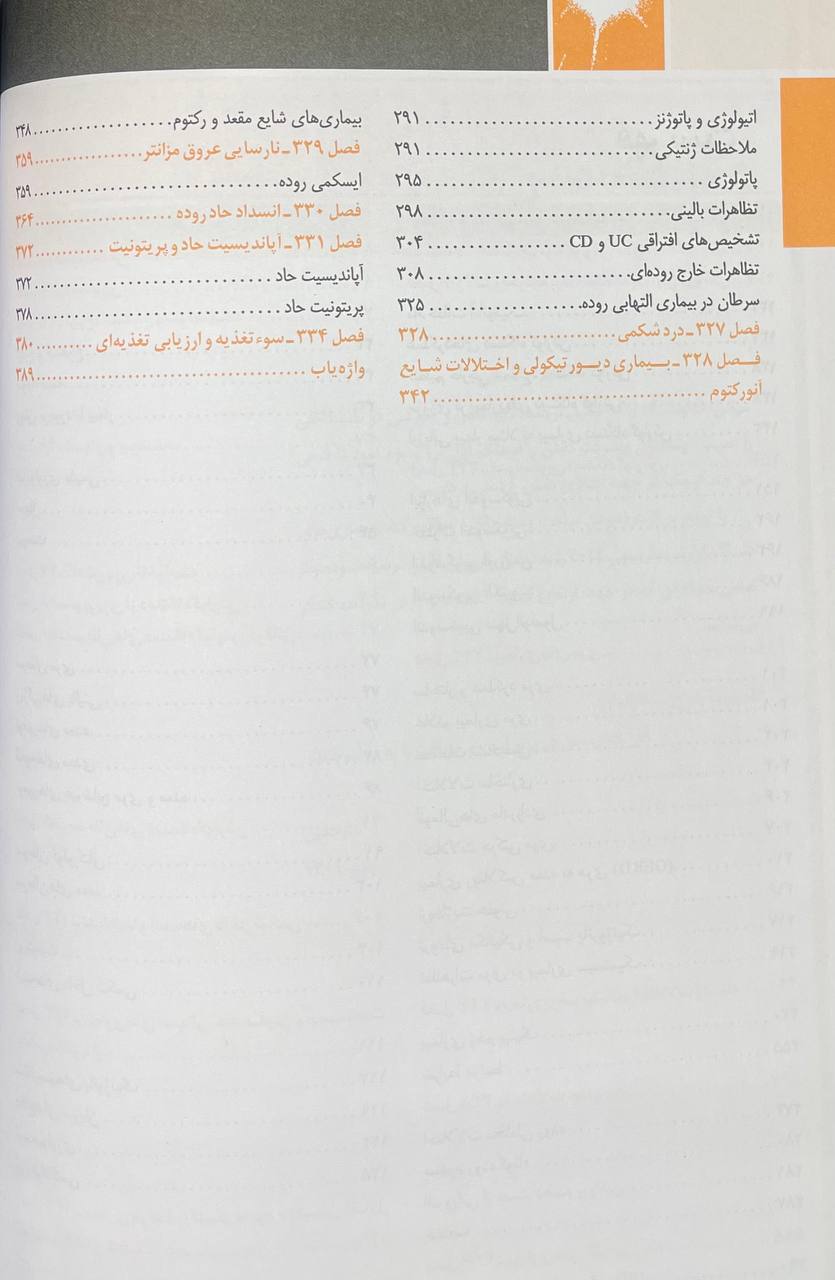 اتیولوژی و پاتوژنز ............................ ۲۹۱
ملاحظات ژنتیکی ............................ ۲۹۱
پاتولوژی .................................. ۲۹۵
تظاهرات بالینی ............................ ۲۹۸
تشخیص‌های افتراقی UC و CD ................. ۳۰۴
تظاهرات خارج روده‌ای ....................... ۳۰۸
سرطان در بیماری التهابی روده ............... ۳۲۵
فصل ۳۲۷ـ درد شکمی ........................ ۳۲۸
فصل ۳۲۸ـ بیماری دیورتیکولی و اختلالات شایع
آنورکتوم .................................. ۳۴۲
بیماری‌های شایع مقعد و رکتوم ................ ۳۴۸
فصل ۳۲۹ـ نارسایی عروق مزانتر .............. ۳۵۹
ایسکمی روده ............................... ۳۵۹
فصل ۳۳۰ـ انسداد حاد روده .................. ۳۶۴
فصل ۳۳۱ـ آپاندیسیت حاد و پریتونیت .......... ۳۷۲
آپاندیسیت حاد .............................. ۳۷۲
پریتونیت حاد ............................... ۳۷۸
فصل ۳۳۴ـ سوء تغذیه و ارزیابی تغذیه‌ای ....... ۳۸۰
واژه‌یاب ................................... ۳۸۹